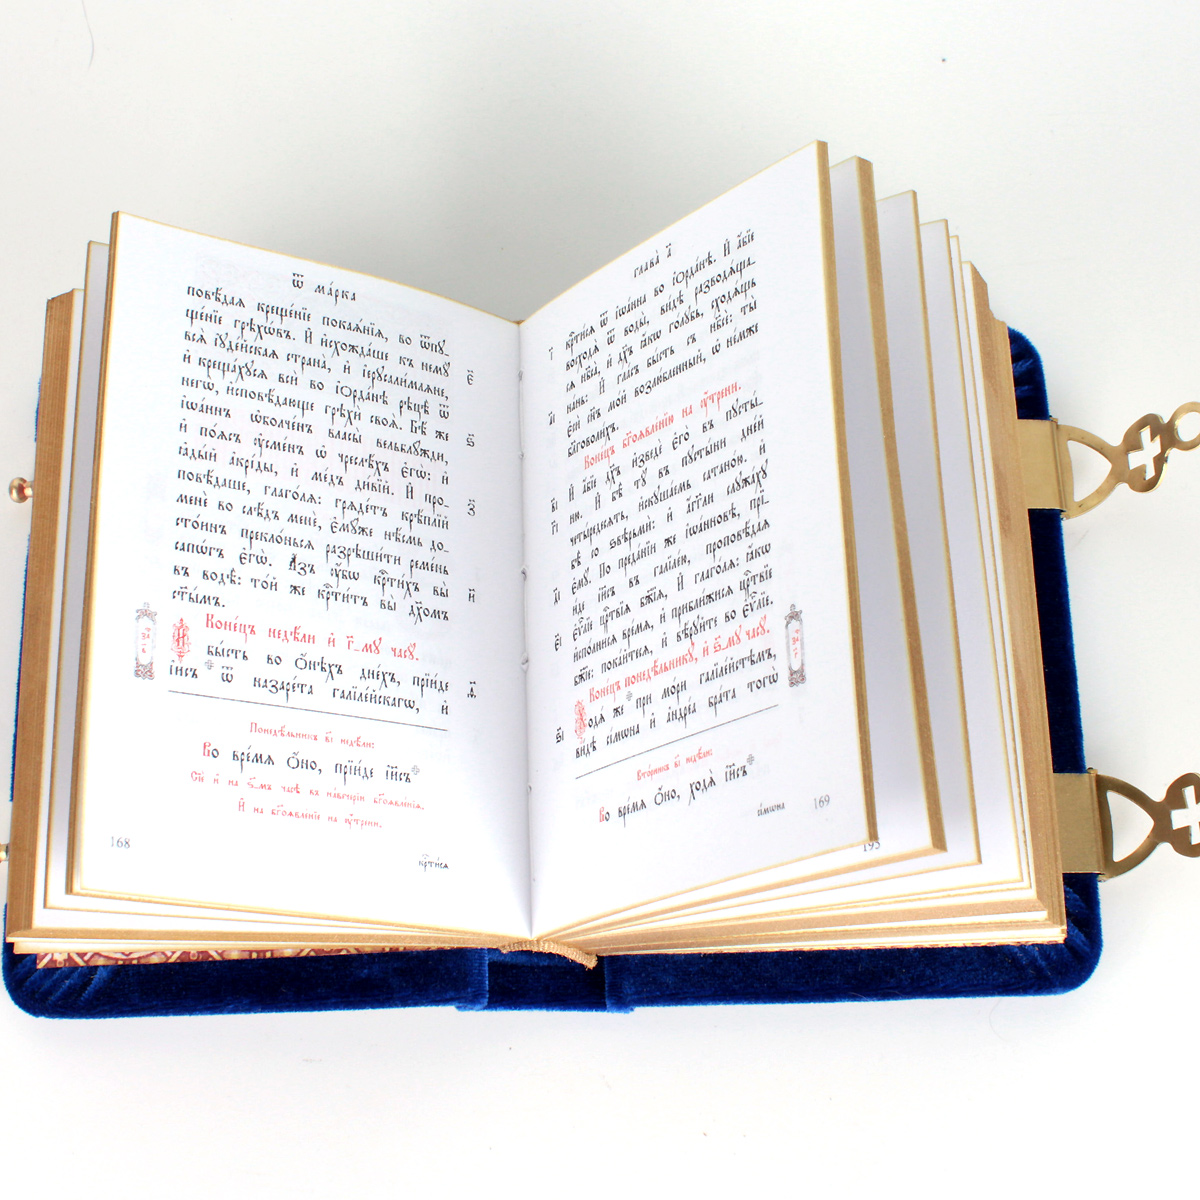 Ѿ ма́рка
повѣ́дая креще́нїе покая́нїѧ, во ѿпꙋ-
ще́нїе грѣхѡ́въ. И҆ и҆схожда́ше къ немꙋ̀
всѧ̀ і҆ꙋде́йская страна̀, и҆ і҆ерⷭ҇али́млѧне,
и҆ креща́хꙋсѧ всѝ во і҆ѻрда́нѣ рѣцѣ̀ ѿ
негѡ̀, и҆сповѣ́дающе грѣхѝ своѧ̀. Бѣ́ же
і҆ѡа́ннъ ѡ҆болче́нъ власы̀ вельблꙋ̑жди,
и҆ по́ѧсъ ᲂу҆сме́нъ ѡ҆ чреслѣ́хъ є҆гѡ̀: и҆
ꙗ҆ды́й а҆кри̑ды, и҆ ме́дъ ди́вїй. И҆ про-
повѣ́даше, глаго́лѧ: грѧде́тъ крѣ́плїй
менє̀ во слѣ́дъ менє̀, є҆мꙋ́же нѣ́смь до-
сто́инъ прекло́ньсѧ разрѣши́ти реме́нь
сапѡ́гъ є҆гѡ̀. А҆́зъ ᲂу҆́бѡ крⷭ҇ти́хъ вы̀
въ водѣ̀: то́й же крⷭ҇ти́тъ вы̀ дх҃омъ
ст҃ы́мъ.
Коне́цъ недѣ́ли и҆ г҃-мꙋ часꙋ̀.
И҆ бы́сть во ѻ҆́нѣхъ дне́хъ, прїи́де
і҆и҃съ ѿ назаре́та галїле́йскагѡ, и҆
є҃
ѕ҃
з҃
и҃
ѳ҃
Понедѣ́льникъ в҃і недѣ́ли:
Во вре́мѧ ѻ҆́но, прїи́де і҆и҃съ
Сїѐ и҆ на ѕ҃-мъ часѣ̀ въ наве́черїи бг҃оѧвле́нїѧ.
И҆ на бг҃оѧвле́нїе на ᲂу҆́трени.
168
крⷭ҇ти́сѧ
глава̀ а҃
крⷭ҇ти́сѧ ѿ і҆ѡа́нна во і҆ѻрда́нѣ. И҆ а҆́бїе
восходѧ̀ ѿ воды̀, ви́дѣ разводѧ́ща-
сѧ нб҃са̀, и҆ дх҃ъ ꙗ҆́кѡ го́лꙋбь, сходѧ́щь
на́нь: И҆ гла́съ бы́сть съ нб҃сѐ: ты̀
є҆сѝ сн҃ъ мо́й возлю́бленный, ѡ҆ не́мже
благоволи́хъ.
Коне́цъ бг҃оѧвле́нїю на ᲂу҆́трени.
И҆ а҆́бїе дх҃ъ и҆зведѐ є҆го̀ въ пꙋсты́-
ню. И҆ бѣ̀ тꙋ̀ въ пꙋсты́ни дні́й
четы́редесѧть, и҆скꙋша́емь сатано́ю. и҆
бѣ̀ со ѕвѣрьмѝ: и҆ а҆́гг҃ли слꙋжа́хꙋ
є҆мꙋ̀. По преда́нїи же і҆ѡа́нновѣ, прї-
и́де і҆и҃съ въ галїле́ю, проповѣ́даѧ
є҆ѵⷢ҇лїе црⷭ҇твїѧ бж҃їѧ, И҆ глаго́лѧ: ꙗ҆́кѡ
и҆спо́лнисѧ вре́мѧ, и҆ прибли́жисѧ црⷭ҇твїе
бж҃їе: пока́йтесѧ, и҆ вѣ́рꙋйте во є҆ѵⷢ҇лїе.
Коне́цъ понедѣ́льникꙋ, и҆ ѕ҃-мꙋ часꙋ̀.
Ходѧ́ же при мо́ри галїле́йстѣмъ,
ви́дѣ сі́мѡна и҆ а҆ндре́а бра́та тогѡ̀
і҃
а҃і
в҃і
г҃і
д҃і
є҃і
ѕ҃і
Вто́рникъ в҃і недѣ́ли:
Во вре́мѧ ѻ҆́но, ходѧ̀ і҆и҃съ
сі́мѡна
169
195